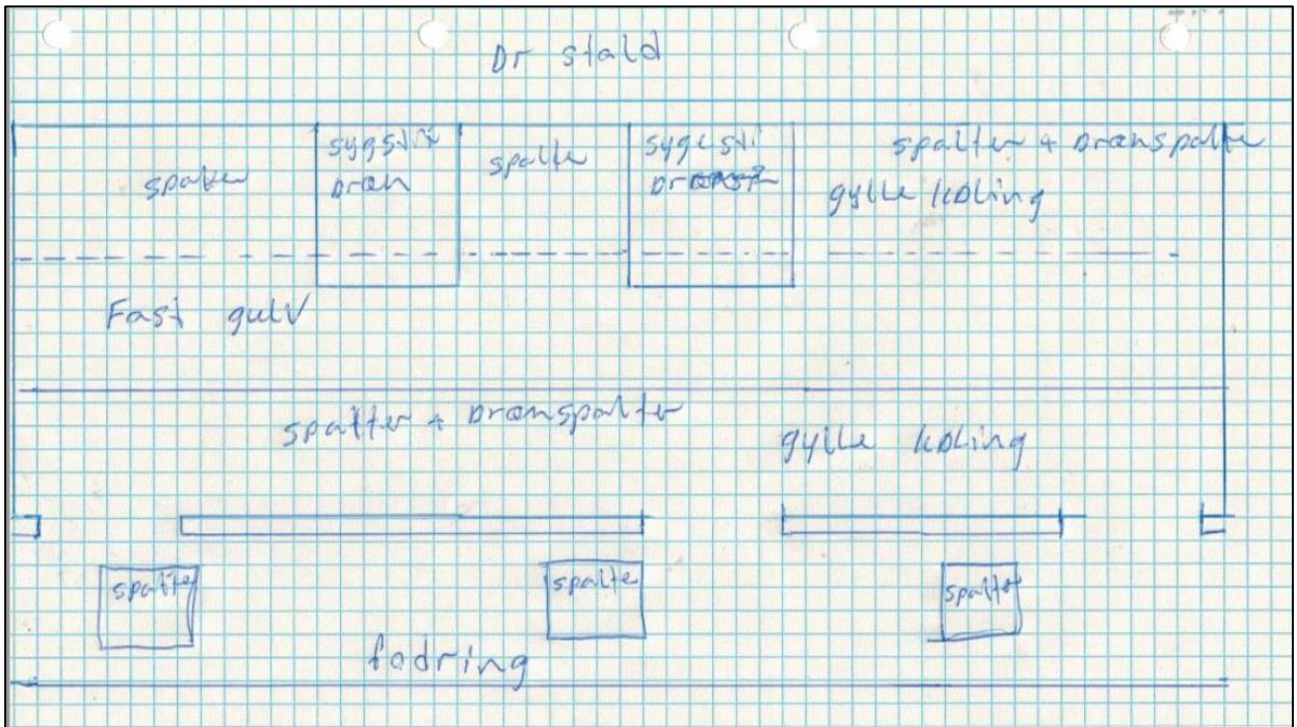 Dr stald
spalter
sygsti
Dræn
spalte
sygesti
Dræn
spalter + Drænspalte
gylle køling
Fast gulv
spalter + Drænspalter
gylle køling
spalte
spalte
spalte
fodring